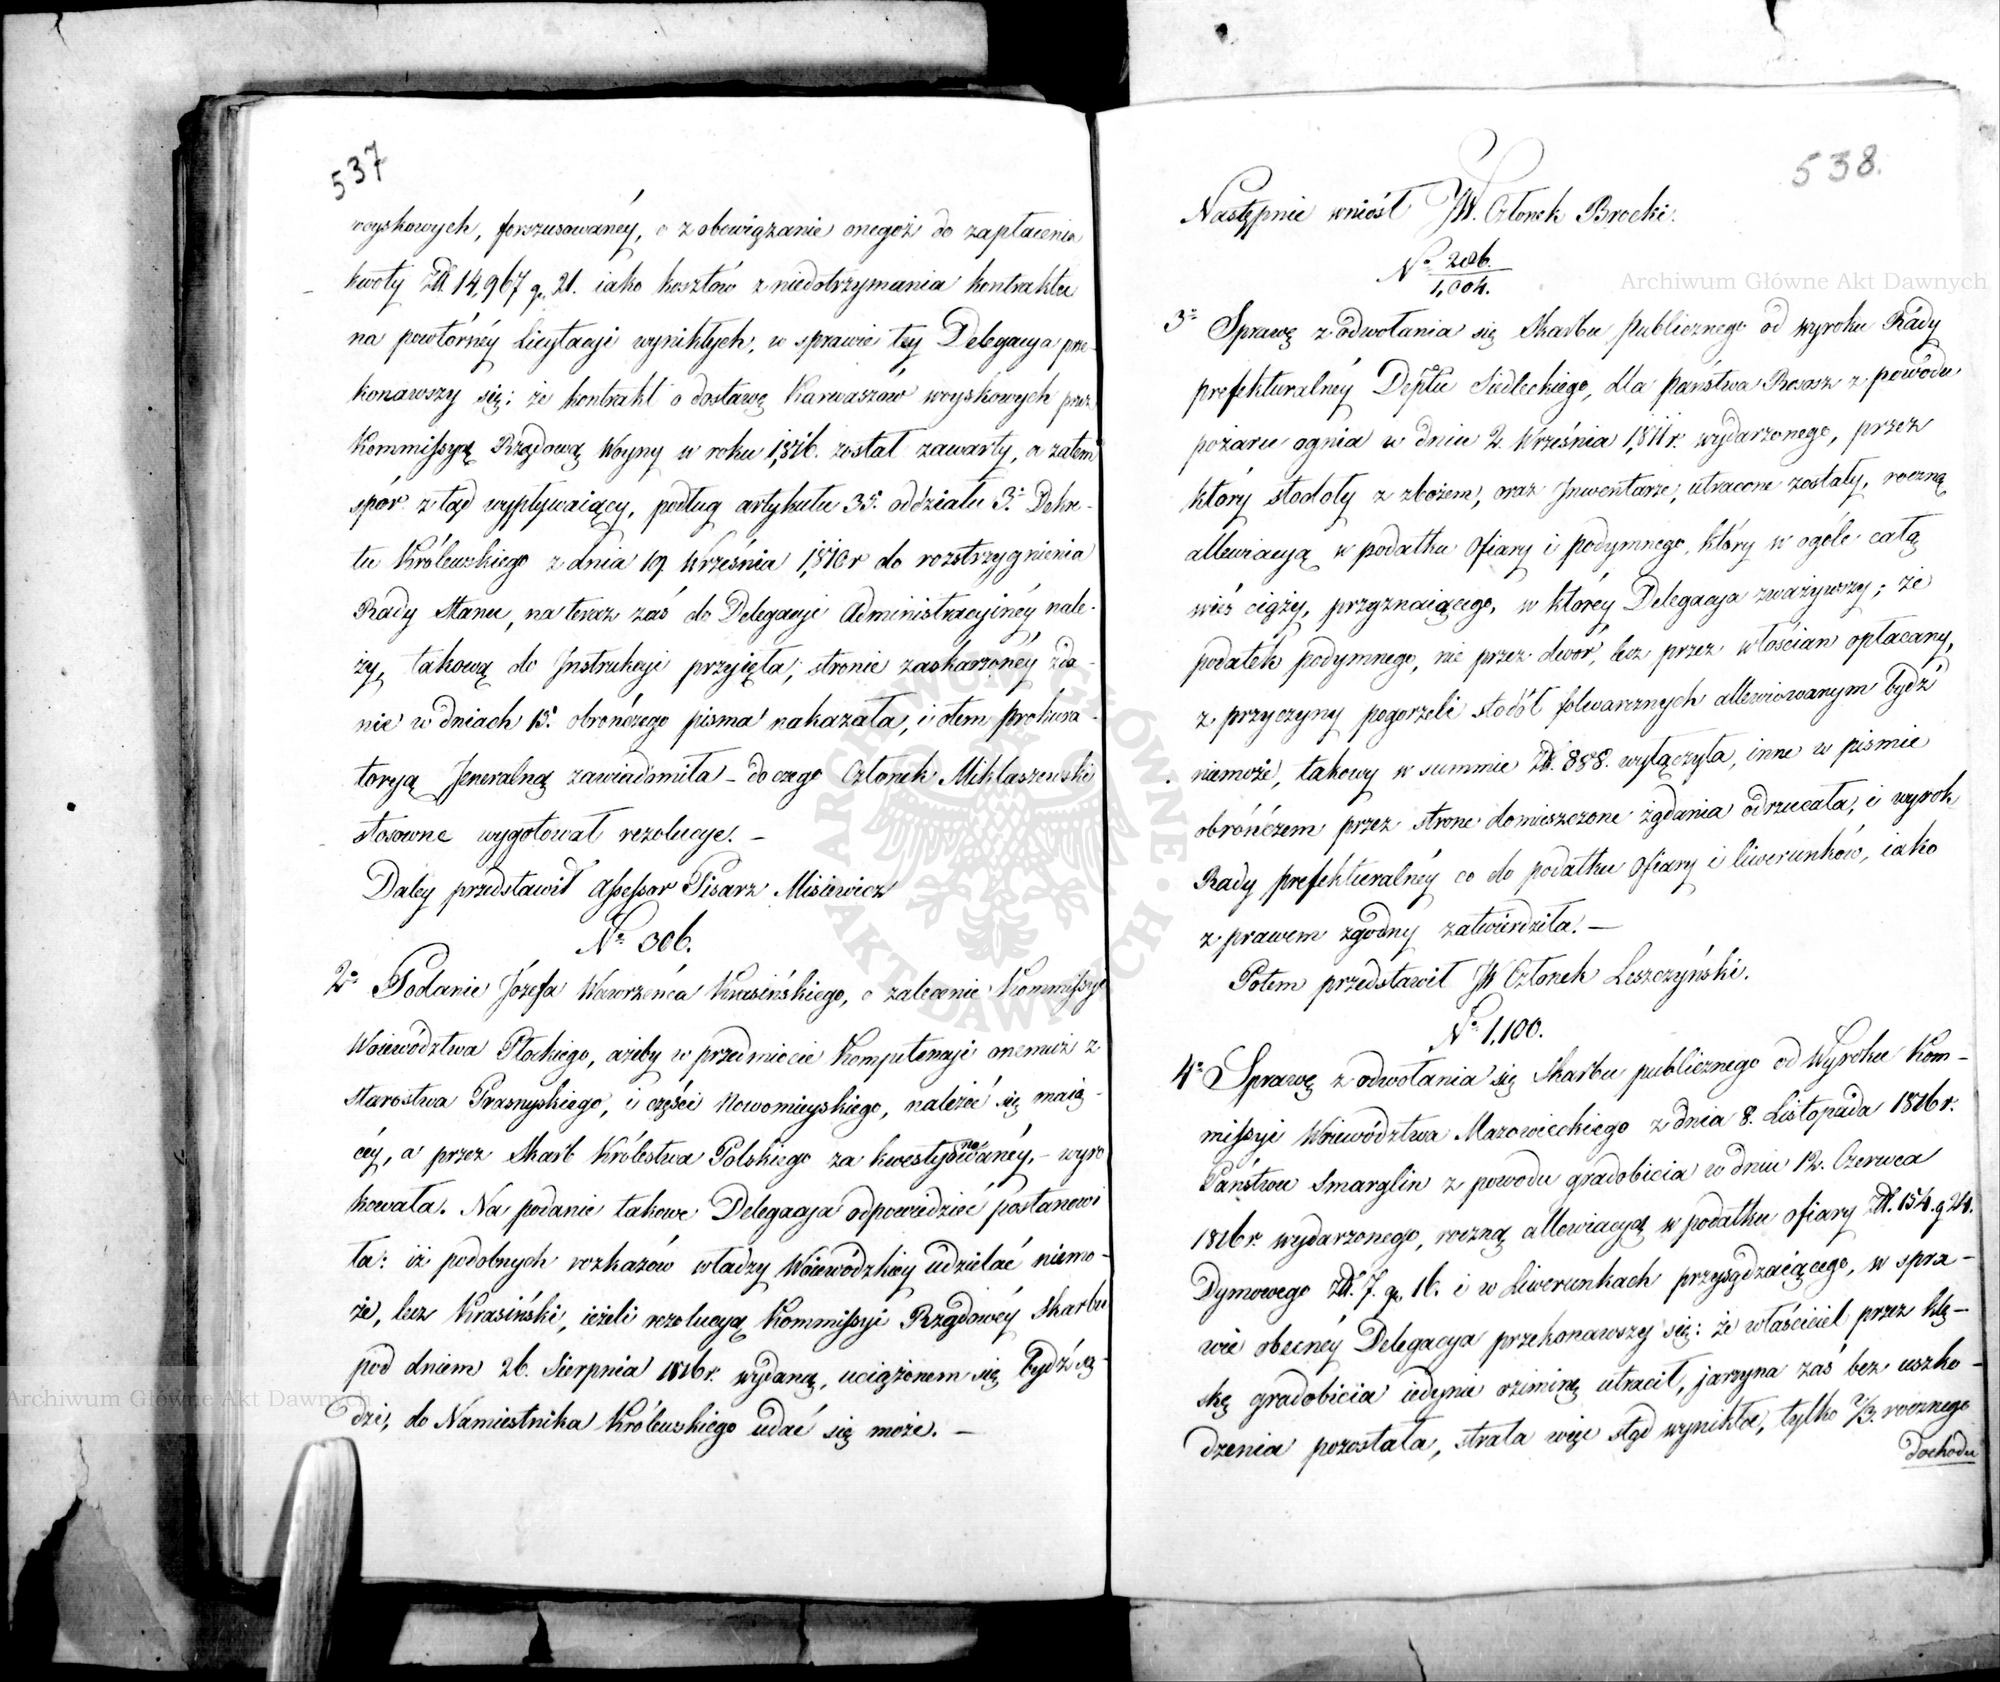 537
woyskowych, forszusowanéy, o zobowiązanie onegoż do zapłacenia
kwoty Złł. 14,967 g. 21. iako kosztów z niedotrzymania kontraktu
na powtórnéy Licytacyi wynikłych, w sprawie tey Delegacya prze-
konawszy się: że kontrakt o dostawę Karwaszów woyskowych przez
Kommissyą Rządową Woyny w roku 1,816. został zawarty, a zatem
spór z tąd wypływaiący, podług artykułu 35. oddziału 3. Dekre-
tu Królewskiego z dnia 19 Września 1,810r do rozstrzygnienia
Rady Stanu, na teraz zaś do Delegacyi Administracyinéy nale-
ży, takową do Instrukcyi przyięta; stronie zaskarżonéy zda-
nie w dniach 15. obrończego pisma nakazała, i otem Prokura-
toryą Jeneralną zawiadomiła – do czego Członek Miklaszewski
stosowne wygotował rezolucye. –
Daley przedstawił Assessor Pisarz Misiewicz
No 306.
2o Podanie Józefa Wawrzeńca Krasińskiego, o zalecenie Kommissyi
Woiewództwa Płockiego, ażeby w przedmiocie Kompetencyi onemuż z
Starostwa Prasnyskiego, i części Nowomieyskiego, należeć się maią-
céy, a przez Skarb Królestwa Polskiego za kwestyonowanéy, – wyro
kowała. Na podanie takowe Delegacya odpowiedzieć postanowi
ła: iż podobnych rozkazów władzy Woiewódzkiey udzielać niemo-
że, lecz Krasiński, ieżeli rezolucyą Kommissyi Rządowéy Skarbu
pod dniem 26. Sierpnia 1816r. wydaną, uciążonem się bydź są-
dzi, do Namiestnika Królewskiego udać się może. –
538.
Następnie wniósł JW. Członek Brocki.
No 206.
1,004.
3o Sprawę z odwołania się Skarbu Publicznego od wyroku Rady
prefekturalnéy Deptu Siedleckiego, dla Państwa Rososz z powodu
pożaru ognia w dniu 2 Września 1,811r. wydarzonego, przez
który stodoły z zbożem, oraz Inwentarze, utracone zostały, roczną
allewiacyą w podatku Ofiary i podymnego, który w ogóle całą
wieś ciąży, przyznaiącego, w któréy Delegacya zważywszy; że
podatek podymnego, nie przez dwór, lecz przez włościan opłacany,
z przyczyny pogorzeli stodół folwarcznych allewiowanym bydź
niemoże, takowy w summie Złł. 888. wyłączyła, inne w piśmie
obrończem przez stronę domieszczone żądania odrzucała, i wyrok
Rady prefekturalnéy co do podatku Ofiary i liwerunków, iako
z prawem zgodny zatwierdziła. –
Potem przedstawił JW Członek Leszczyński.
No 1,100.
4o Sprawę z odwołania się Skarbu publicznego od Wyroku Kom-
missyi Woiewództwa Mazowieckiego z dnia 8. Listopada 1816r.
Państwu Smarglin z powodu gradobicia w dniu 12. Czerwca
1816r. wydarzonego, roczną allewiacyą w podatku Ofiary Złł. 154. g 24.
Dymowego Złł. 7. g. 16. i w Liwerunkach przysądzaiącego, w spra-
wie obecnéy Delegacya przekonawszy się: że właściciel przez klę-
skę gradobicia iedynie oziminę utracił, jarzyna zaś bez uszko-
dzenia pozostała, strata więc stąd wynikła, tylko 2/3. rocznego
dochodu
Archiwum Główne Akt Dawnych
Archiwum Główne Akt Dawnych
ARCHIWUM GŁÓWNE AKT DAWNYCH